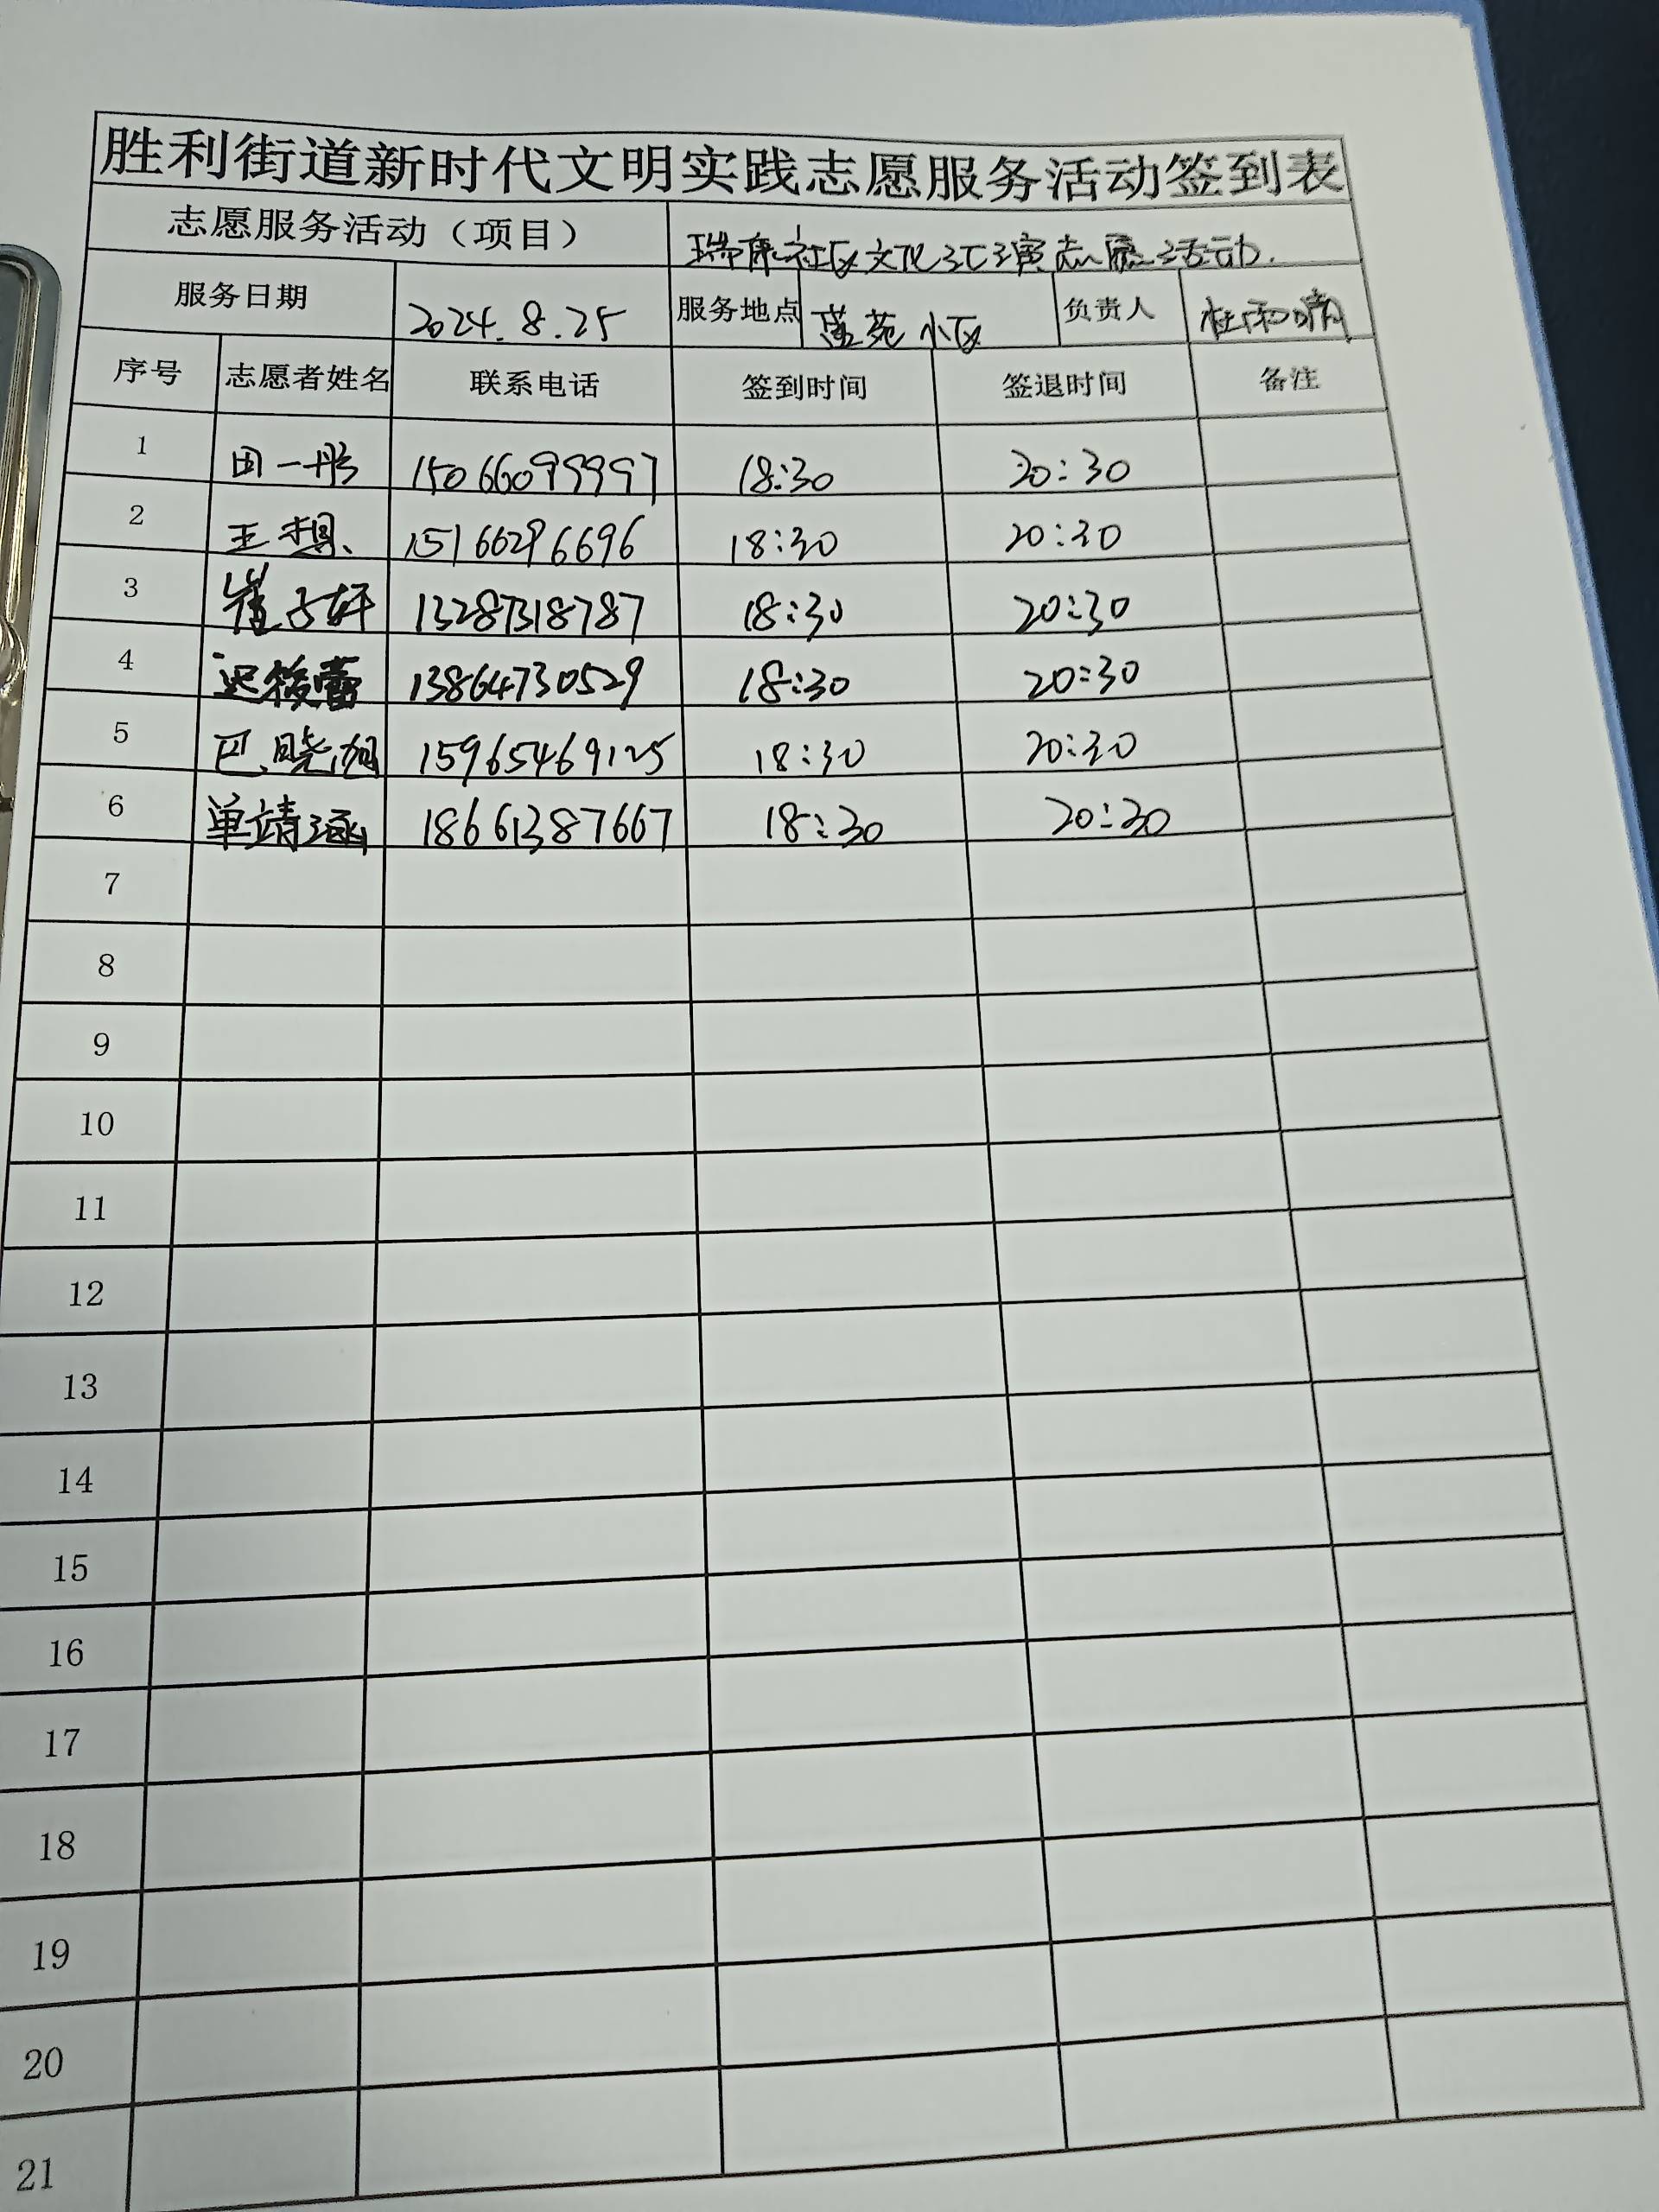 胜利街道新时代文明实践志愿服务活动签到表
志愿服务活动（项目） 瑞康社区文化汇演志愿活动.
服务日期 2024.8.25 服务地点 蓝苑小区 负责人 杜雨晴
序号 志愿者姓名 联系电话 签到时间 签退时间 备注
1 田一彤 15066099997 18:30 20:30
2 王想 15166296696 18:30 20:30
3 崔子轩 13287318787 18:30 20:30
4 迟筱蕾 13864730529 18:30 20:30
5 巴晓旭 15965469125 18:30 20:30
6 单靖涵 18661387667 18:30 20:30
7
8
9
10
11
12
13
14
15
16
17
18
19
20
21